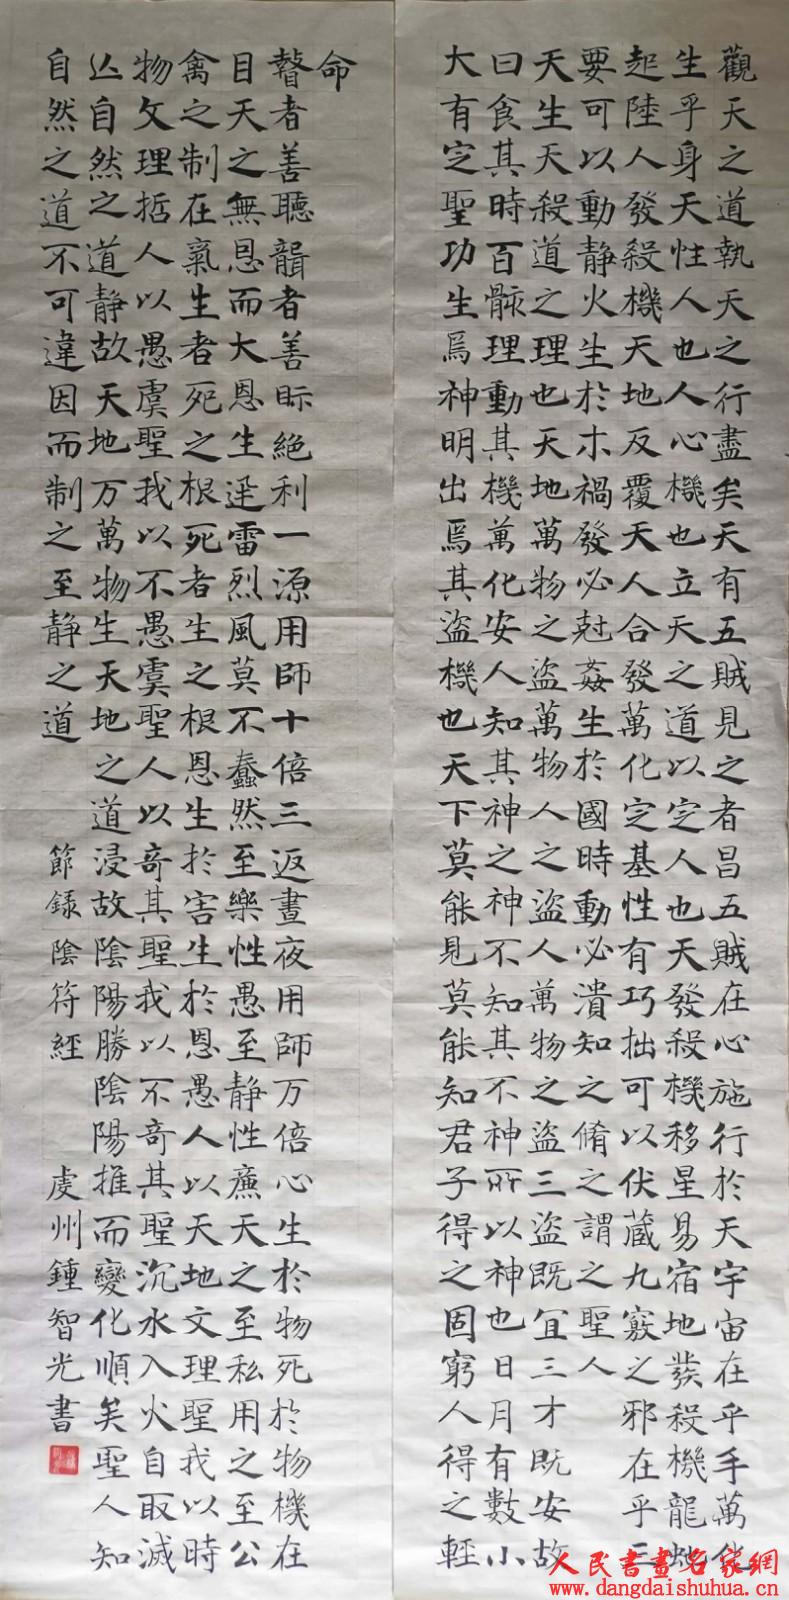 觀天之道執天之行盡矣天有五賊見之者昌五賊在心施行於天宇宙在乎手萬化
生乎身天性人也人心機也立天之道以定人也天發殺機移星易宿地發殺機龍虵
起陸人發殺機天地反覆天人合發萬化定基性有巧拙可以伏藏九竅之邪在乎三
要可以動靜火生於木禍發必尅姦生於國時動必潰知之脩之謂之聖人
天生天殺道之理也天地萬物之盜萬物人之盜人萬物之盜三盜既宜三才既安故
曰食其時百骸理動其機萬化安人知其神之神不知其不神所以神也日月有數小
大有定聖功生焉神明出焉其盜機也天下莫能見莫能知君子得之固窮人得之輕
命
瞽者善聽聾者善眎絕利一源用師十倍三返晝夜用師万倍心生於物死於物機在
目天之無恩而大恩生迅雷烈風莫不蠢然至樂性愚至靜性廉天之至私用之至公
禽之制在氣生者死之根死者生之根恩生於害生於恩愚人以天地文理聖我以時
物文理哲人以愚虞聖我以不愚虞聖人以奇其聖我以不奇其聖沉水入火自取滅
亾自然之道靜故天地万萬物生天地之道浸故陰陽勝陰陽推而變化順矣聖人知
自然之道不可違因而制之至靜之道
節錄陰符經 虔州鍾智光書
人民書畫名家網
www.dangdaishuhua.cn